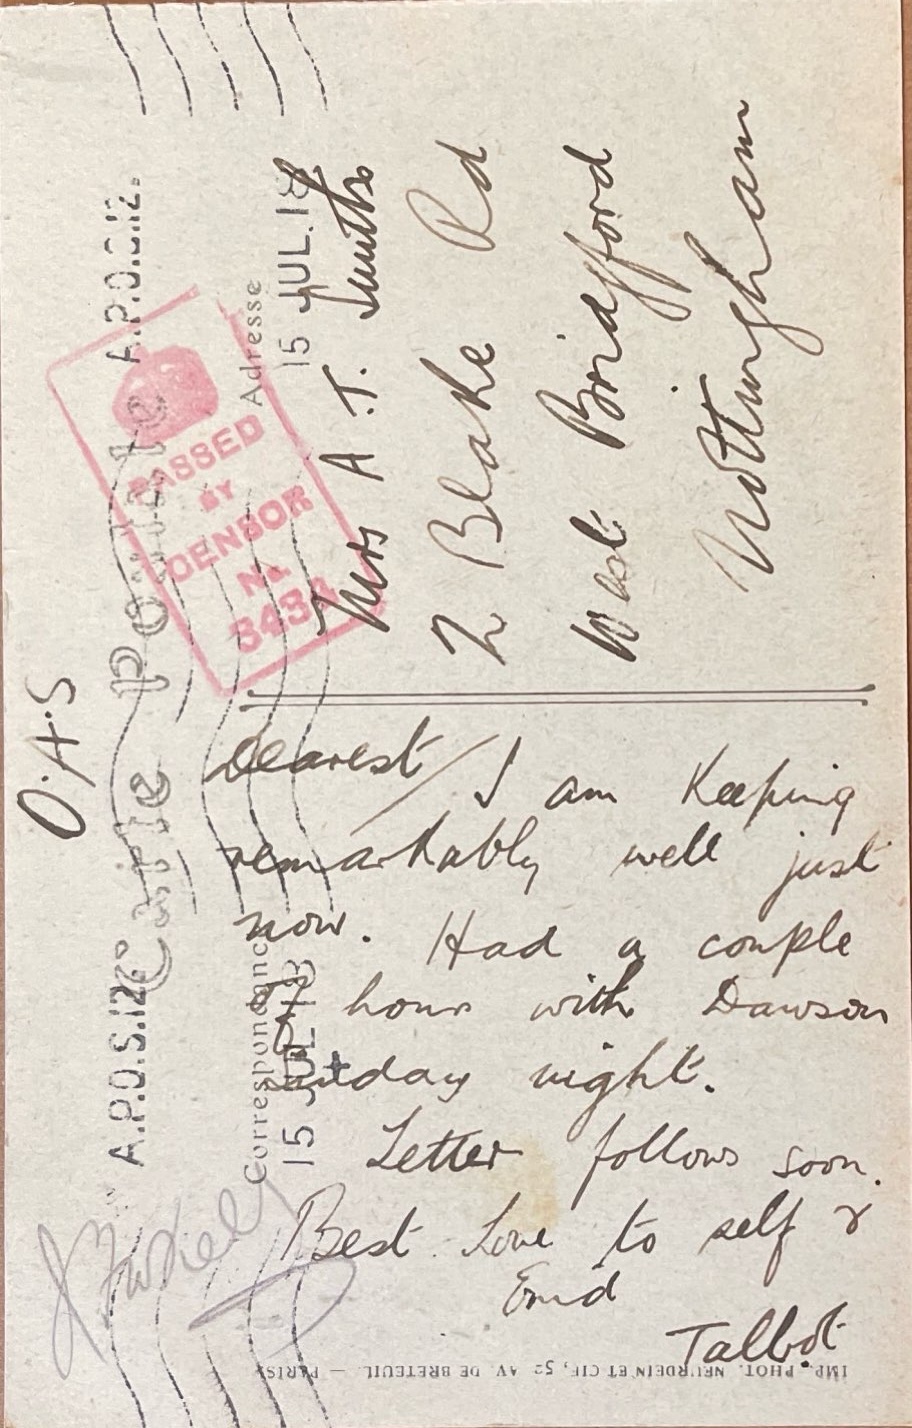 O.A.S
Carte Postale
A.P.O.S.12.
A.P.O.S.12.
15 JUL.18
15 JUL.18
PASSED
BY
CENSOR
No.
Correspondance
Adresse
Dearest / I am keeping
remarkably well just
now. Had a couple
of hours with Dawson
Sunday night.
Letter follows soon.
Best Love to self &
Enid
Talbot
Mrs A.T. Smith
2 Blake Rd
West Bridgford
Nottingham
IMP. PHOT. NEURDEIN ET CIE, 52 AV. DE BRETEUIL. — PARIS